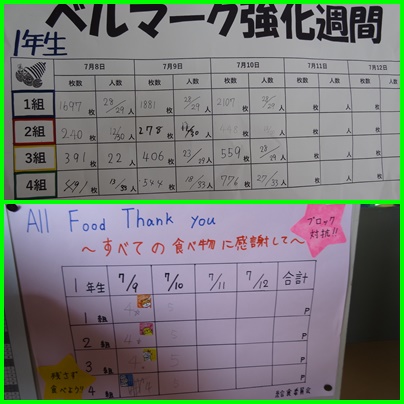 ベルマーク強化週間
1年生
7月8日 7月9日 7月10日 7月11日 7月12日
枚数 人数 枚数 人数 枚数 人数 枚数 人数 枚数
1組 1697枚 28/29人 1881枚 人 2107枚 人 枚 人 枚
2組 240枚 12/30人 278枚 人 枚 人 枚 人 枚
3組 391枚 22人 406枚 23/29人 559枚 人 枚 人 枚
4組 枚 13/33人 344枚 18/33人 776枚 27/33人 枚 人 枚
All Food Thank you
ブロック
対抗!!
~すべての食べ物に感謝して~
1年生 7/9 7/10 7/11 7/12 合計
1組 5 P
2組 5 P
3組 5 P
4組 P
残さず
食べよう!
給食委員会